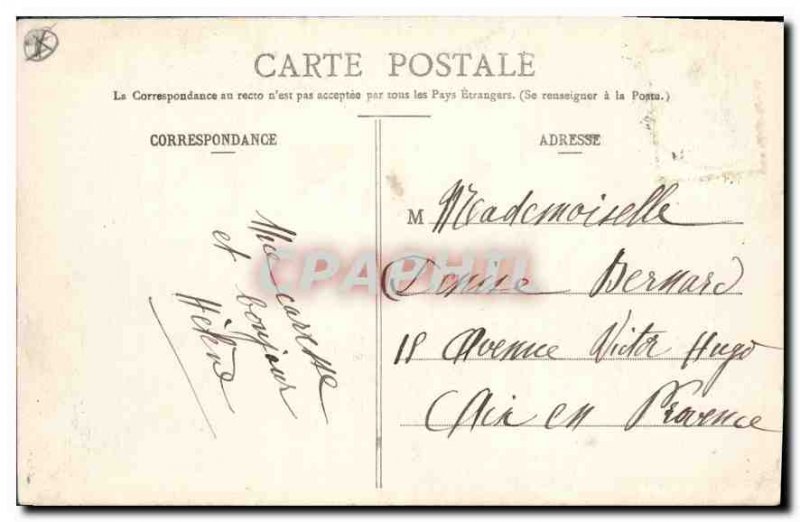 CARTE POSTALE
La Correspondance au recto n'est pas acceptée par tous les Pays Étrangers. (Se renseigner à la Poste.)
CORRESPONDANCE
Une caresse
et bonjour
Hélène
ADRESSE
M Mademoiselle
Denise Bernard
18 Avenue Victor Hugo
Aix en Provence
CPAPHIL